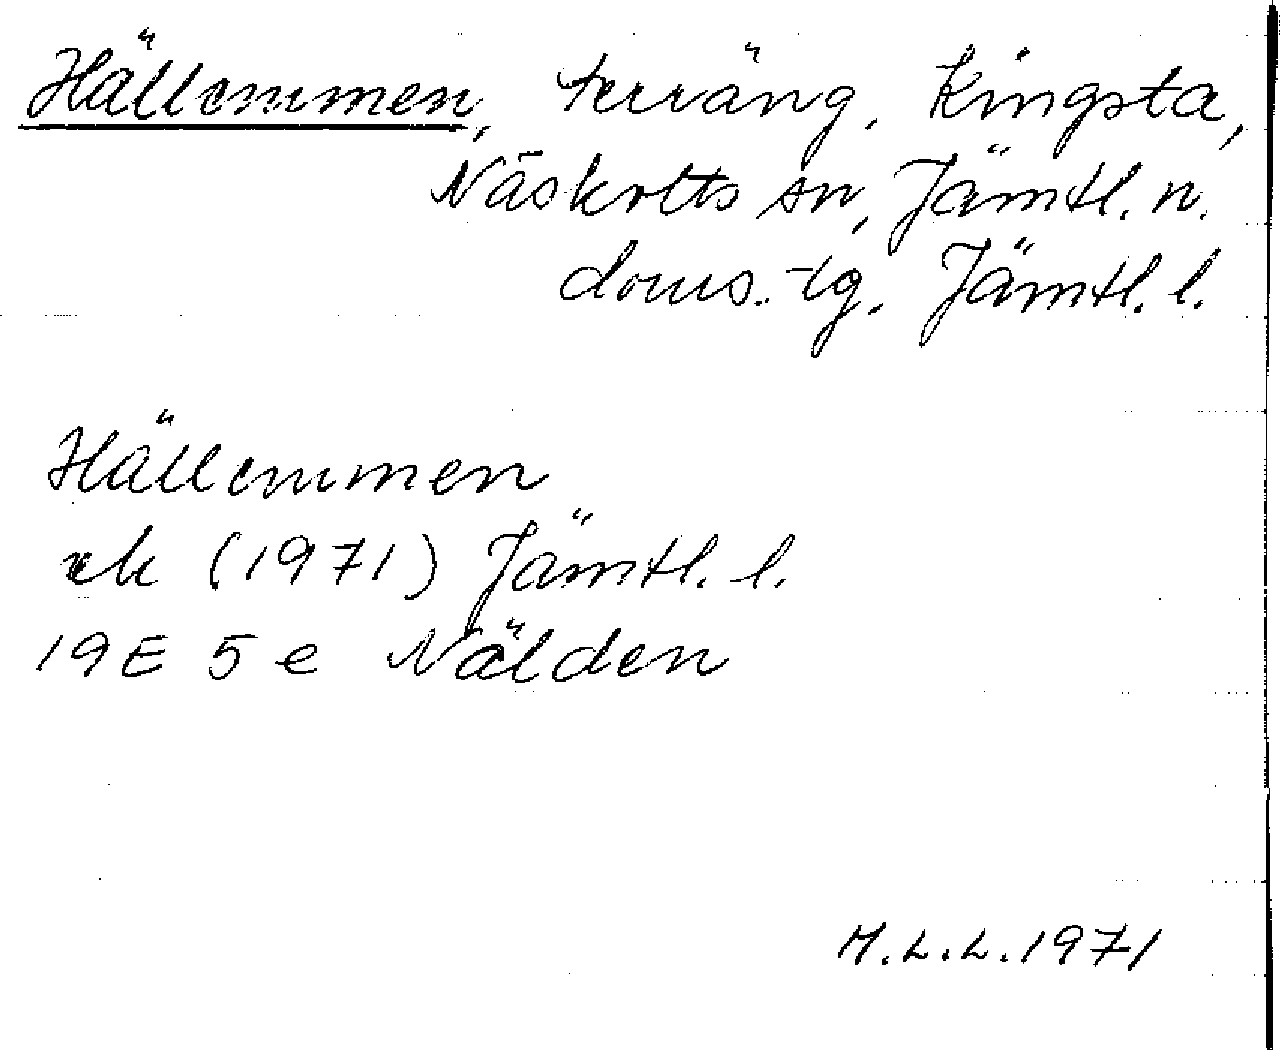 Hällemmen, terräng, Kingsta,
Näskotts sn, Jämtl. n.
doms. tg. Jämtl. l.
Hällemmen
ek (1971) Jämtl. l.
19E 5e Nälden
M.L.L. 1971